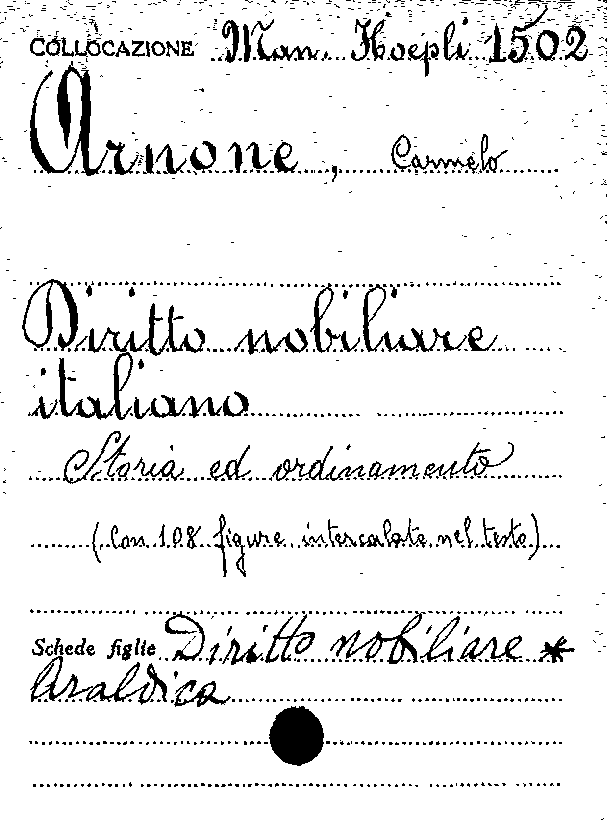 COLLOCAZIONE Man. Hoepli 1502
Arnone, Carmelo
Diritto nobiliare
italiano
Storia ed ordinamento
(Con 108 figure intercalate nel testo)
Schede figlie Diritto nobiliare *
Araldica